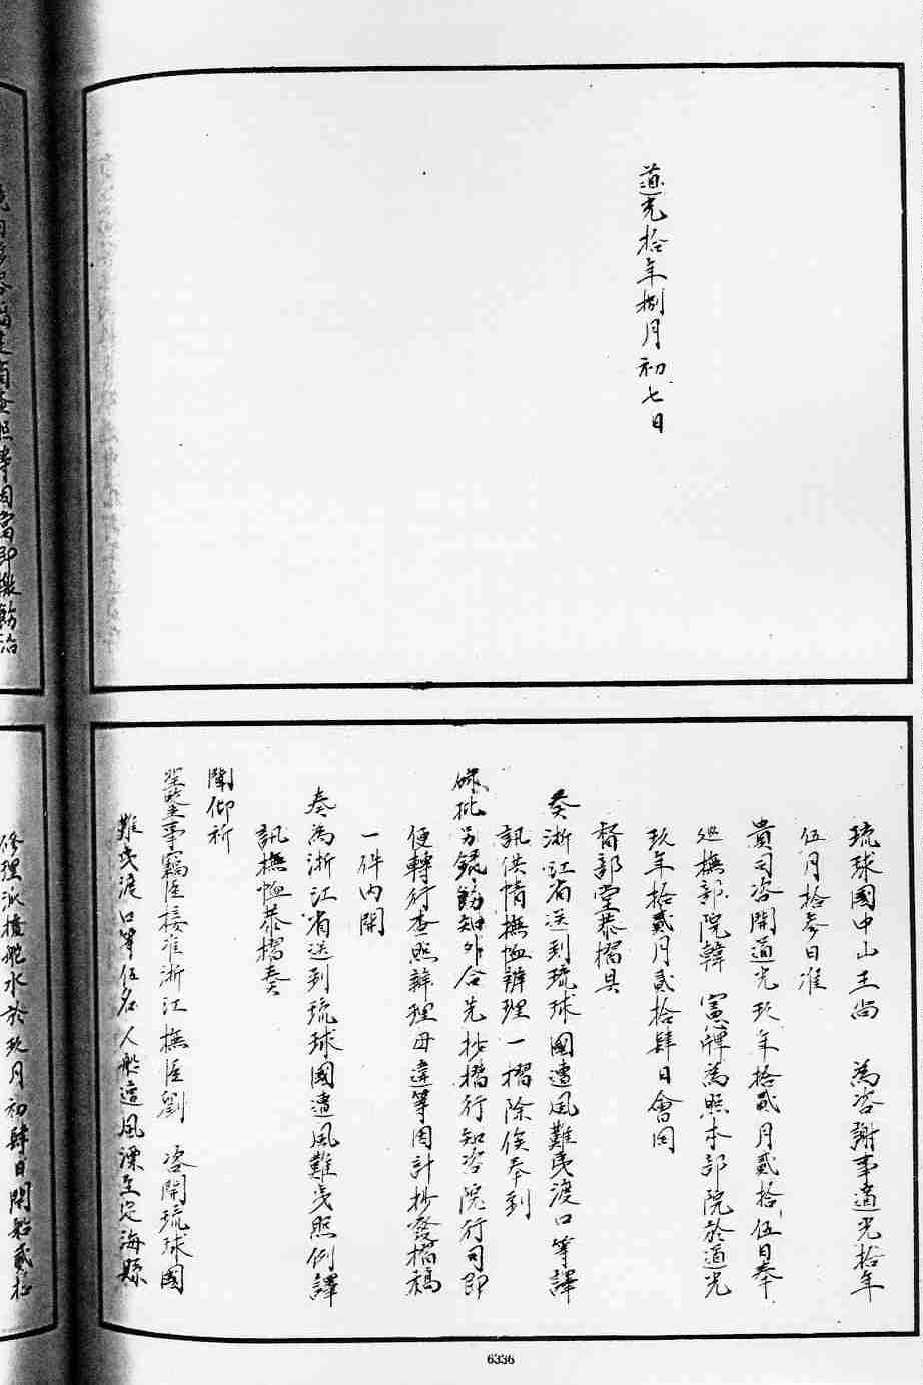 道光拾年捌月初七日
琉球國中山王尚　為咨謝事道光拾年
伍月拾叁日准
貴司咨開道光玖年拾貳月貳拾伍日奉
巡撫部院韓　憲牌為照本部院於道光
玖年拾貳月貳拾肆日會同
督部堂恭摺具
奏浙江省送到琉球國遭風難夷渡口等譯
訊供情撫恤辦理一摺除俟奉到
硃批另錄飭知外合先抄摺行知咨院行司即
便轉行查照辦理毋違等因計抄發摺稿
一件內開
奏為浙江省送到琉球國遭風難夷照例譯
訊撫恤恭摺奏
聞仰祈
聖鑒事竊臣接准浙江撫臣劉　咨開琉球國
難夷渡口等伍名人船遭風漂至定海縣
修理派撥舵水於玖月初肆日開船貳拾
6336